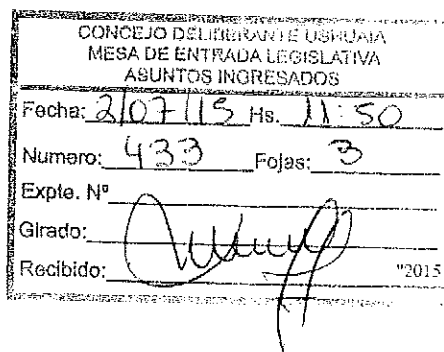 CONCEJO DELIBERANTE USHUAIA
MESA DE ENTRADA LEGISLATIVA
ASUNTOS INGRESADOS
Fecha: 2/07/15 Hs. 11:50
Numero: 433 Fojas: 3
Expte. Nº
Girado:
Recibido: "2015